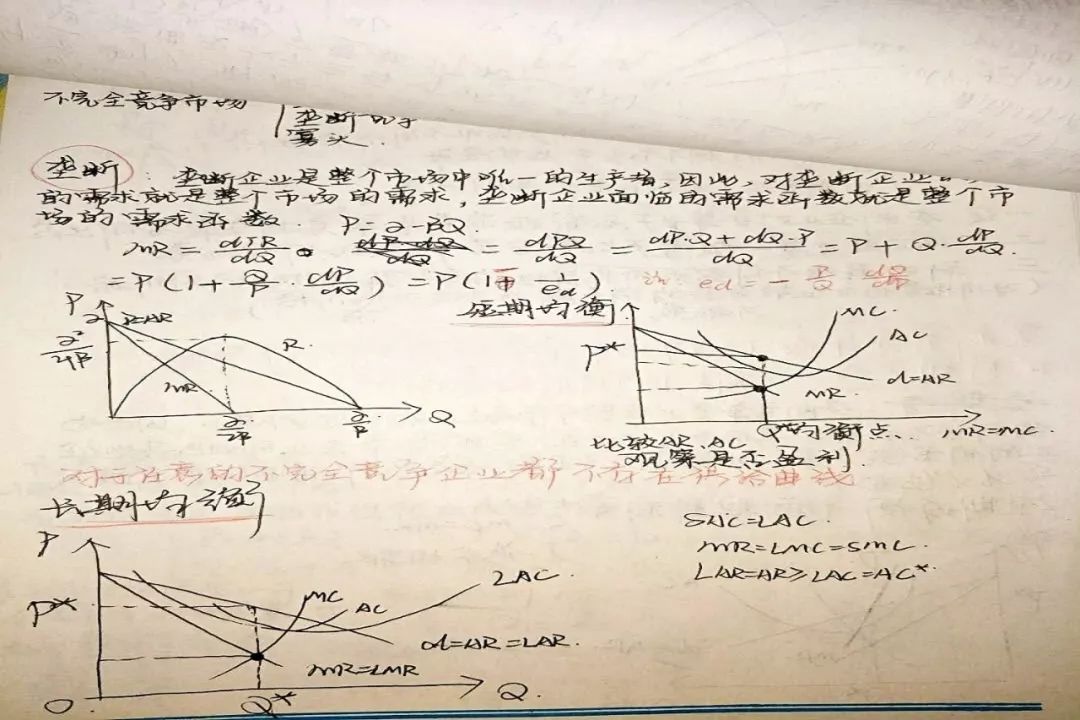 不完全竞争市场
垄断
寡头
垄断：垄断企业是整个市场中唯一的生产者，因此，对垄断企业
的需求就是整个市场的需求，垄断企业面临的需求函数就是整个市
场的需求函数． P=α-βQ
MR = dTR/dQ = dPQ/dQ = (dP·Q+dQ·P)/dQ = P + Q·dP/dQ.
= P(1+ Q/P · dP/dQ) = P(1- 1/ed). 注: ed = - P/Q · dQ/dP
短期均衡
P
α
α²/4β
P=AR
R.
MR
α/2β
α/β
Q
MC.
AC
P*
d=AR
MR.
Q*均衡点.
MR=MC.
比较AR、AC
观察是否盈利.
对于任意的不完全竞争企业都不存在供给曲线
长期均衡
SAC=LAC.
MR=LMC=SMC.
LAR=AR≥LAC=AC*.
P
LAC.
MC
AC
P*
d=AR=LAR.
MR=LMR
O.
Q*
Q.